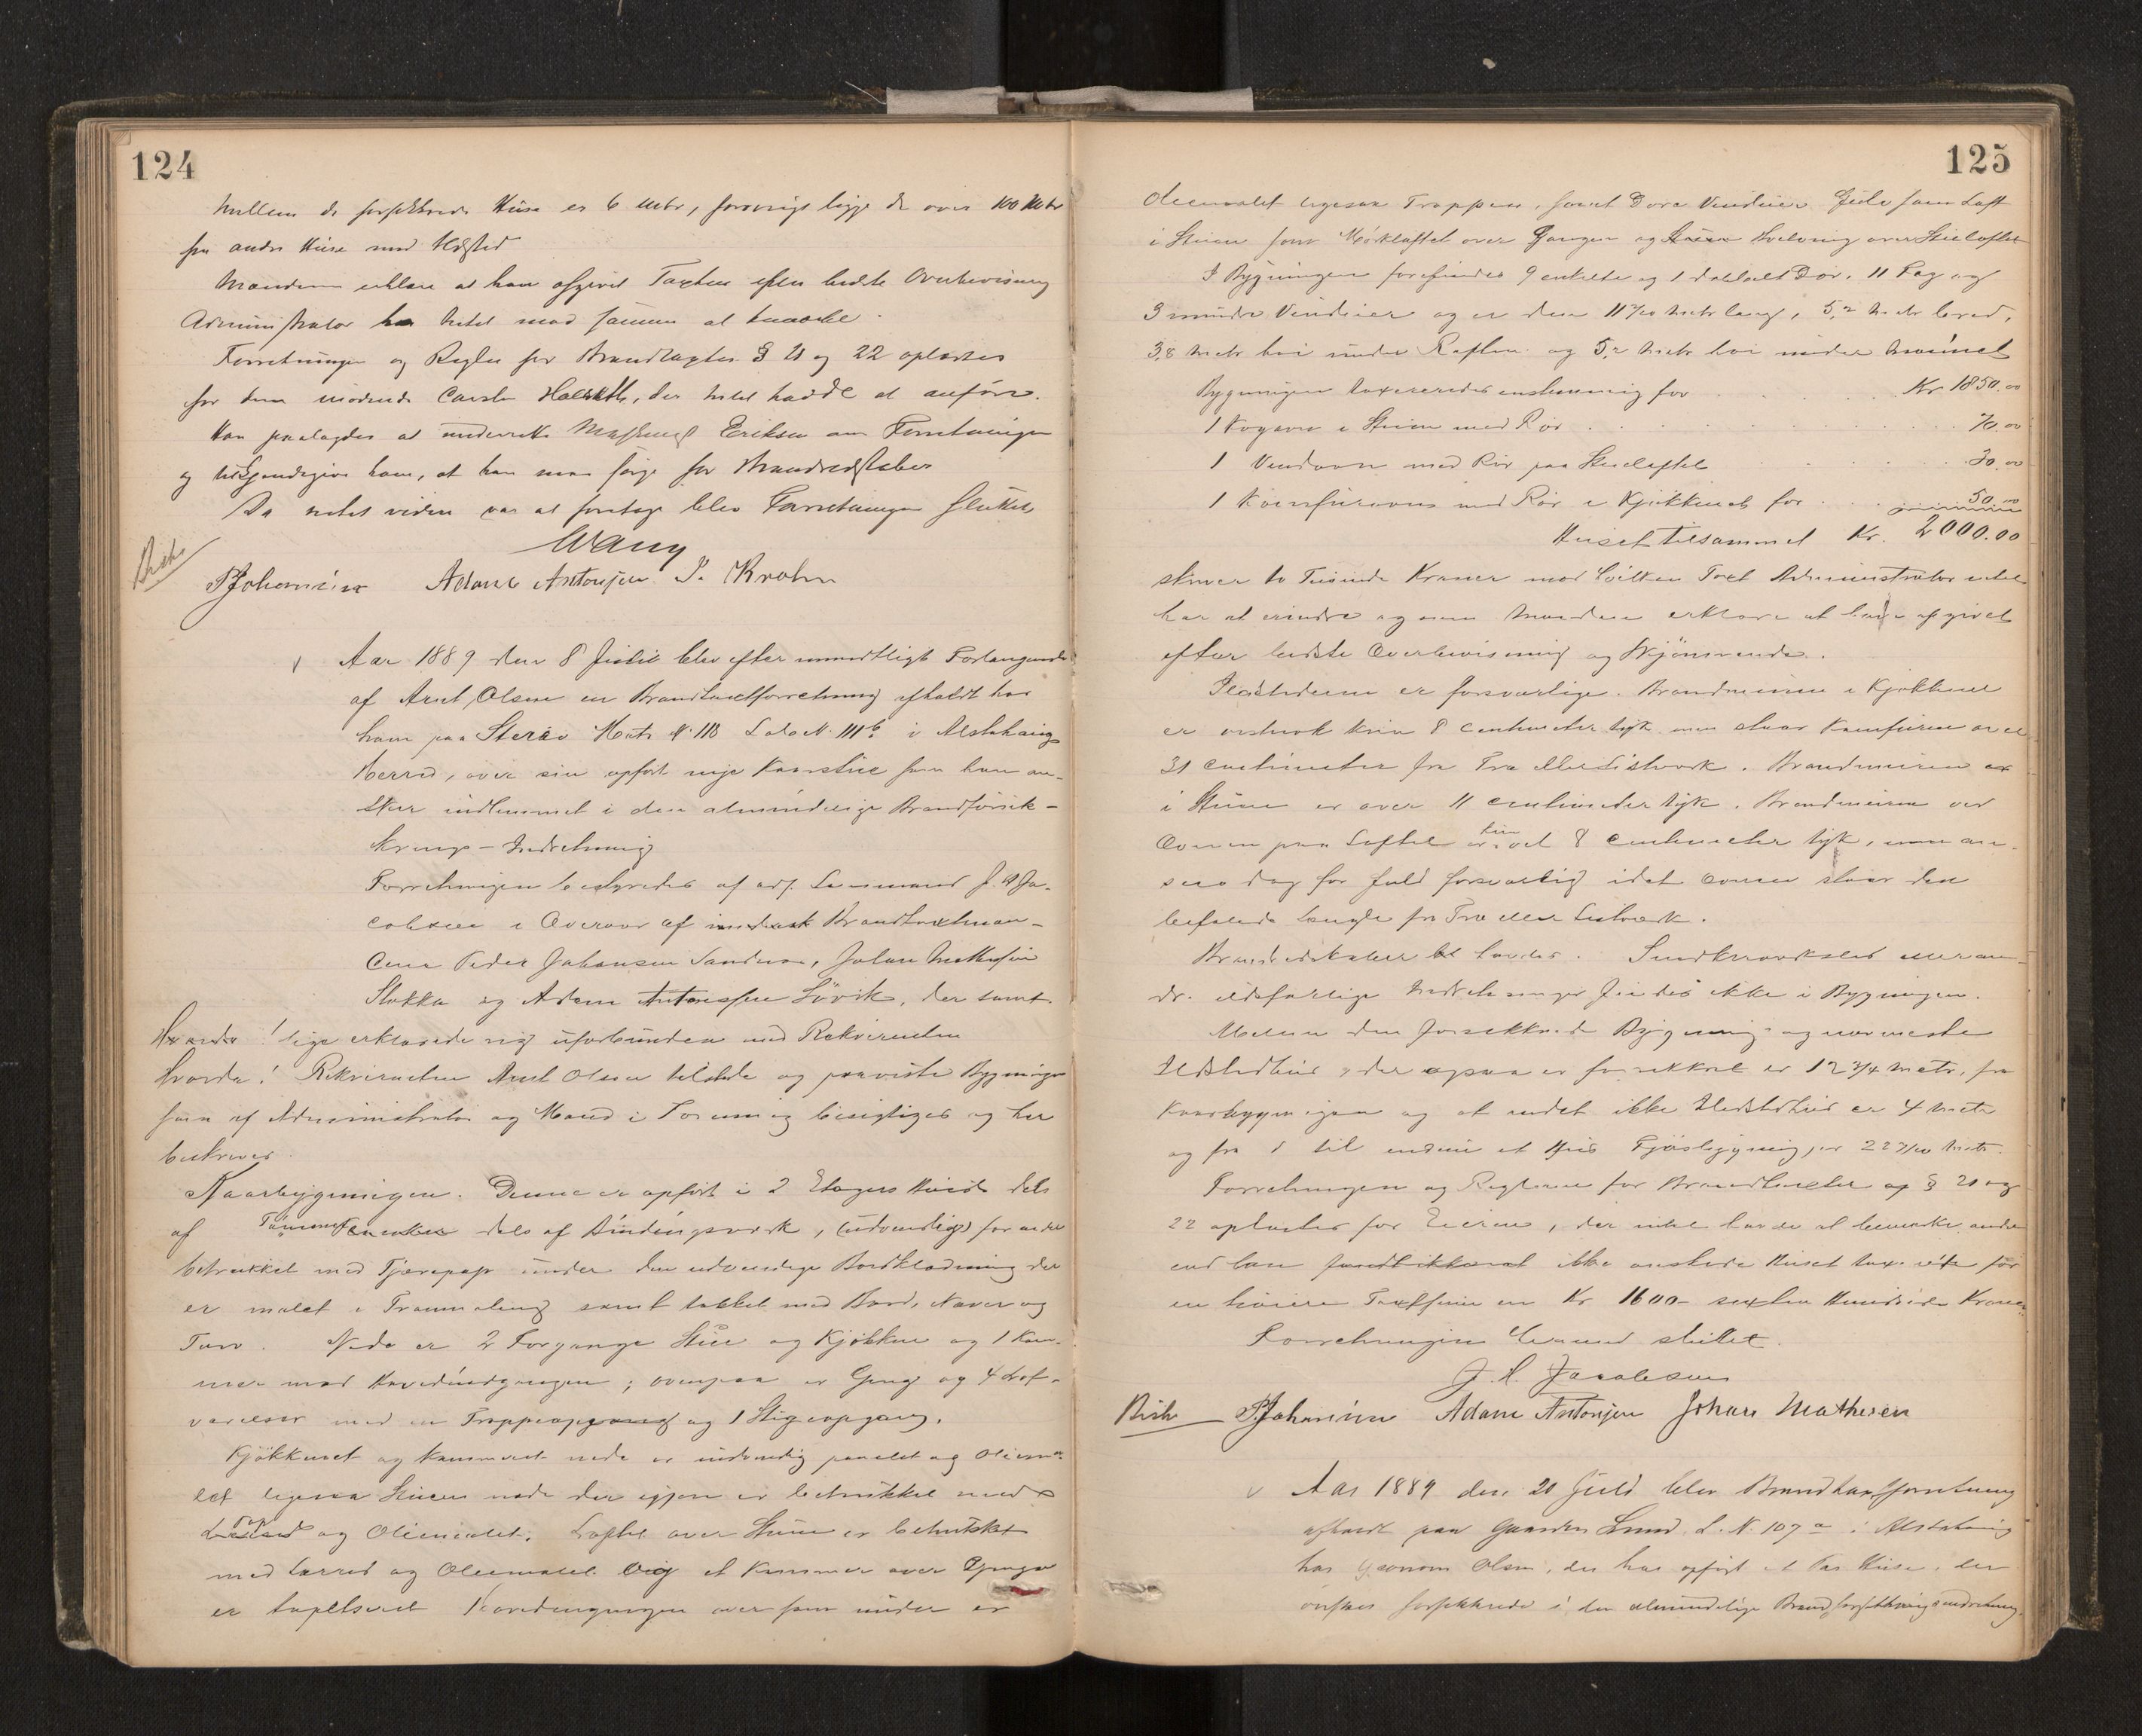 124
mellem de forsikkrede Huse er 6 Meter, forøvrigt ligge de over 100 Meter
fra andre Huse med Ildsted
Mændene erklære at have afgivet Taxten efter bedste Overbevisning
Administrator har Intet mod samme at bemærke.
Forretningen og Regler for Brandtaxter § 21 og 22 oplæstes
for den mødende Carsten, der Intet havde at anføre.
Han paalagdes at underrette Eriksen om Forretningen
og tilkjendegive ham, at han maa sørge for Brandredskaber
Da intet videre var at foretage blev Forretningen sluttet
Wang
PJohansen Adam Antonsen J. Krohn
Aar 1889 den 8 Juli blev efter mundtligt Forlangende
af Arnt Olsen en Brandtaxtforretning afholdt hos
ham paa Sterav Matr N. 118 Løbe N. 111b i Alstahaug
Herred, over sin opført nye Kaarstue som han øn-
sker indlemmet i den almindelige Brandforsik-
krings-Indretning
Forretningen bestyredes af adj. Lensmand J. H Ja-
cobsen i Overvær af Brandtaxtmæn-
dene Peder Johansen Sandnes, Johan Mathesen
Stokka og Adam Antonsen Søvik, der samt-
lige erklærede sig uforbunden med Rekvirenten
Hvorda! Rekvirenten Arnt Olsen tilstede og paaviste Bygningen
som af Administrator og Mænd i Forening besigtiges og her
beskrives.
Kaarbygningen. Denne er opført i 2 Etagers Høide dels
af Tømmer dels af Bindingsværk, (udvendig) for en del
betrukket med Tjærepap under den udvendige Bordklædning der
er malet i Tranmaling samt tækket med Bord, Næver og
Torv. Nede er 2 Forgange Stue og Kjøkken og 1 Kam-
mer med Hovedindgangen; ovenpaa er Gang og 4
værelser med en Trappeopgang og 1 Stigeopgang.
Kjøkkenet og Kammeret nede er indvendig panelet og Oliema-
let ligesaa Stuen nede der igjen er betrukket med
og Oliemalet. Loftet over Stuen er betrukket
med Lærred og Oliemalet Og et Kammer over Gangen
er tapetseret Hovedengangen over som under er
125
Oliemalet ligesaa Trappen, samt Døre Vinduer Gulv som Loft
i Stuen som Mørkloftet over Gangen og Hvelving over Stueloftet
I Bygningen forefindes 9 enkelte og 1 dobbelt Dør. 11 Fag og
3 mindre Vinduer og er den 11 7/10 Meter lang, 5,2 Meter bred,
3,8 Meter høi under Raften og 5,2 Meter høi under Mønnet
Bygningen taxeredes enstemmig for Kr. 1850.00
1 Kogovn i Stuen med Rør 70.00
1 Vindovn med Rør paa Stueloftet 30.00
1 Komfurovn med Rør i Kjøkkenet for 50.00
Huset tilsammen Kr. 2000.00
skriver to Tusinde Kroner mod hvilken Taxt Administrator intet
har at erindre og som Mændene erklære at have afgivet
efter bedste Overbevisning og Skjønnende.
Ildstederne er forsvarlige. Brandmuren i Kjøkkenet
er vistnok kun 8 centimeter tyk men staar Komfuren over
31 centimeter fra Træ eller Listværk. Brandmuren
i Stuen er over 11 centimeter tyk. Brandmuren ved
Ovnen paa Loftet er vel kun 8 Centimeter tyk, men an-
sees dog for fuld forsvarlig idet ovnen staar den
befalede Længde fra Træ eller Listværk.
Brandredskaber havdes. Smedkværksted eller an-
dr. ildsfarlige Indretninger findes ikke i Bygningen.
Mellem den forsikkrede Bygning og nærmeste
Ildstedhus, der ogsaa er forsikkret er 12 3/4 Metr. fra
Kaarbygningen og et andet ikke Ildstedhus er 4 Metr
og fra d til endnu et Hus Fjøsbygning, er 22 7/10 Metr.
Forretningen og Reglerne for Brandtaxter af § 21 og
22 oplæstes for Eieren, der intet havde at bemærke andet
end han ikke ønskede Huset taxeret for
en høiere Taxtsum en Kr 1600 - sexten Hundrede Kroner
Forretningen dermed sluttet.
J. H. Jacobsen
PJohansen Adam Antonsen Johan Mathesen
Aar 1889 den 20 Juli blev Brandtaxtforretning
afholdt paa Gaarden Lund L. N. 107a i Alstahaug
hos Olsen, der har opført et Par Huse, der
ønskes forsikkrede i den almindelige Brandforsikkringsindretning.